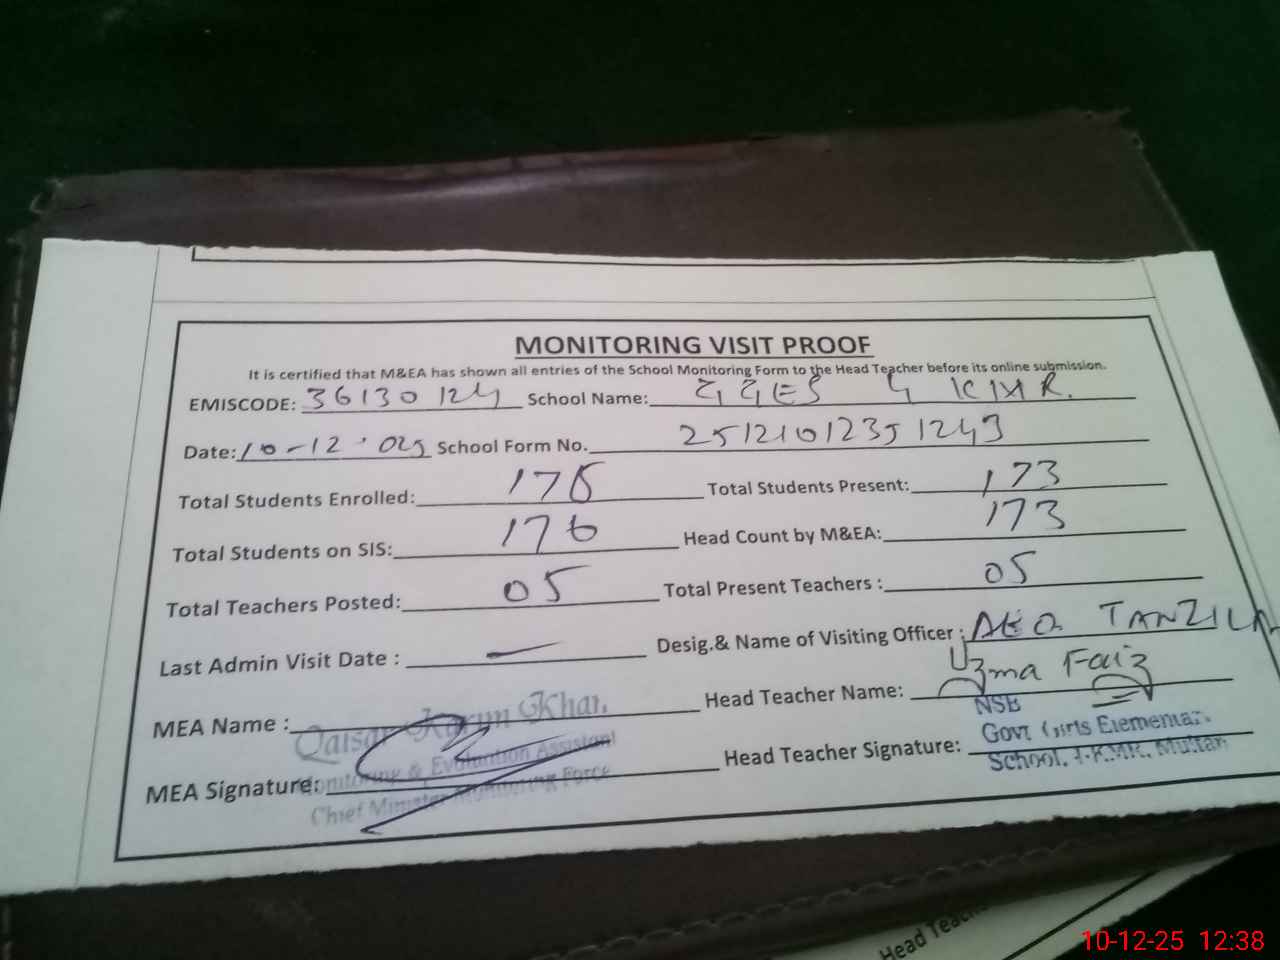 MONITORING VISIT PROOF
It is certified that M&EA has shown all entries of the School Monitoring Form to the Head Teacher before its online submission.
EMISCODE: 36130124 School Name: GGES 4 KMR.
Date: 10-12-025 School Form No. 25121012351243
Total Students Enrolled: 176 Total Students Present: 173
Total Students on SIS: 176 Head Count by M&EA: 173
Total Teachers Posted: 05 Total Present Teachers : 05
Last Admin Visit Date : — Desig.& Name of Visiting Officer : AEO TANZILA
MEA Name : Qaisar Karim Khan Head Teacher Name: Uzma Faiz
Monitoring & Evaluation Assistant
NSB
MEA Signature: Head Teacher Signature: Govt Girls Elementary
Chief Minister Monitoring Force
School, 4-KMR, Multan
Head Teach
10-12-25 12:38